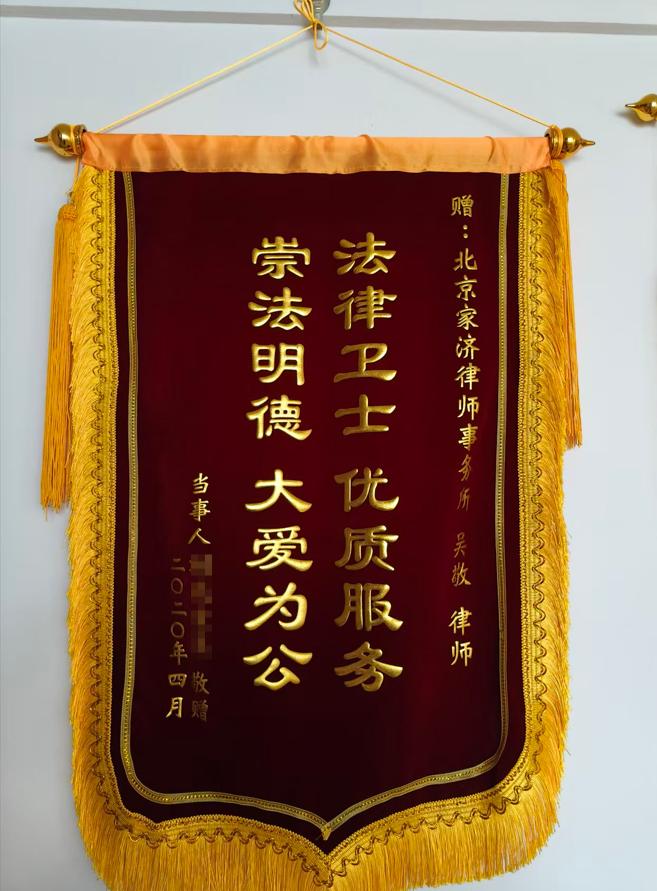 赠：北京家济律师事务所 吴敬 律师
法律卫士 优质服务
崇法明德 大爱为公
当事人 敬赠
二〇二〇年四月